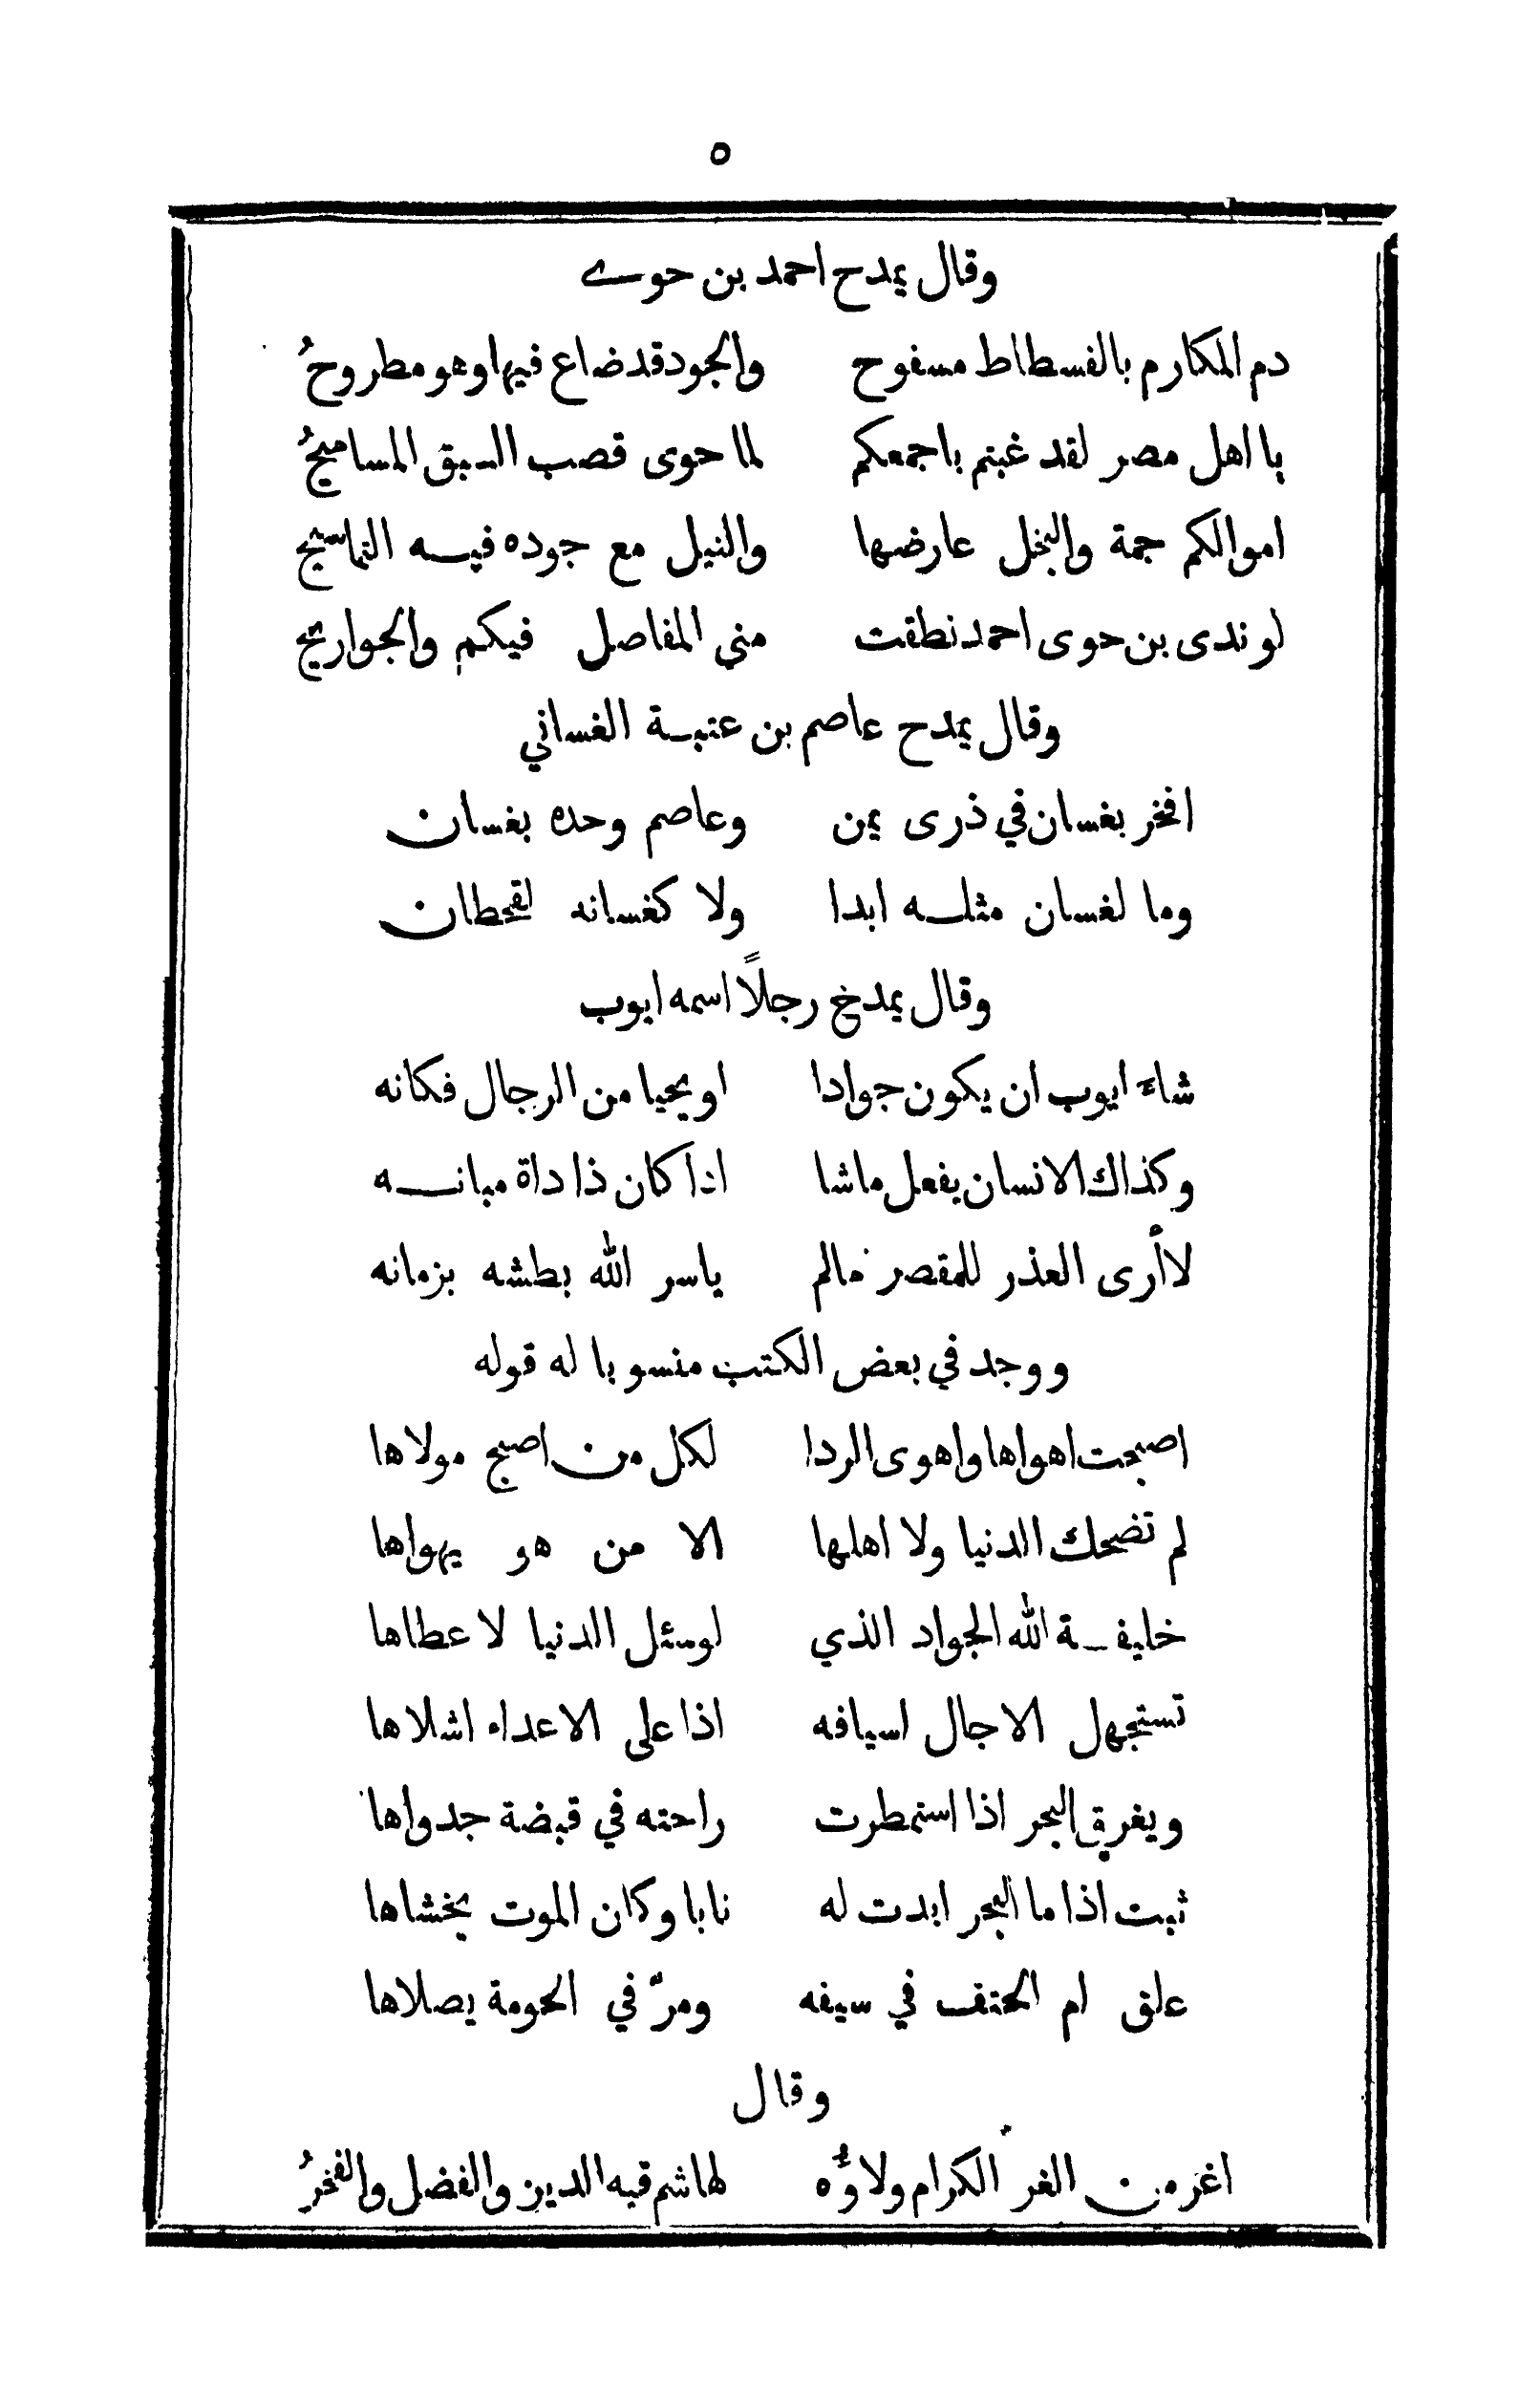 ٥
وقال يمدح احمد بن حوے
دم المكارم بالفسطاط مسفوح والجود قد ضاع فيها وهو مطروحُ
يا اهل مصر لقد غبتم باجمعكم لما حوى قصب السبق المساميحُ
اموالكم جمة والبخل عارضها والنيل مع جوده فيه التماسيح
لو ندى بن حوى احمد نطقت مني المفاصل فيكم والجواريح
وقال يمدح عاصم بن عتبسة الغساني
افخر بغسان في ذرى يمن وعاصم وحده بغسان
وما لغسان مثله ابدا ولا كغسانه لقحطان
وقال يمدخ رجلاً اسمه ايوب
شاء ايوب ان يكون جوادا او يحيا من الرجال فكانه
وكذاك الانسان يفعل ماشا اذا كان ذا داة مبانه
لا أرى العذر للمقصر مالم ياسر الله بطشه بزمانه
ووجد في بعض الكتب منسوبا له قوله
اصبحت اهواها واهوى الردا لكل من اصبح مولاها
لم تضحك الدنيا ولا اهلها الا من هو يهواها
خليفة الله الجواد الذي لوسئل الدنيا لاعطاها
تستجهل الاجال اسيافه اذا على الاعداء اشلاها
ويغرق البحر اذا استمطرت راحته في قبضة جدواها
ثبت اذا ما البحر ابدت له نابا وكان الموت يخشاها
علق ام الحتف في سيفه ومرّ في الحومة يصلاها
وقال
اغر من الغر الكرام ولاؤه لهاشم قبه الدين والفضل والفخرُ